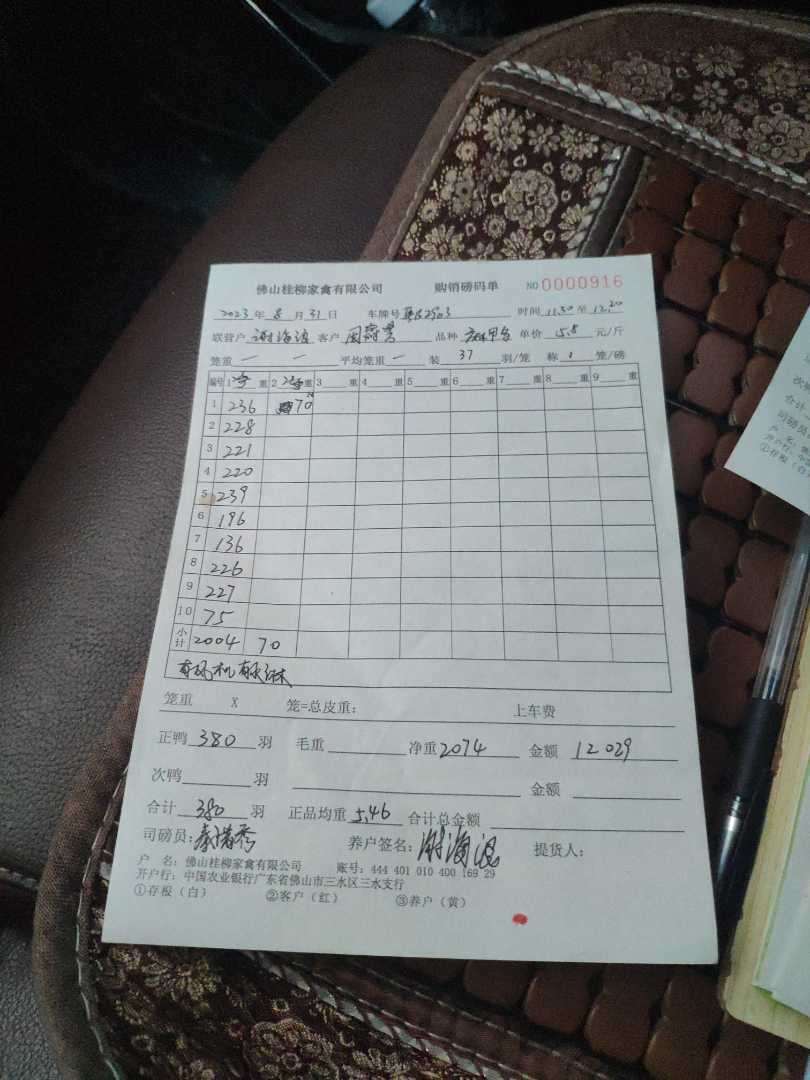 佛山桂柳家禽有限公司 购销磅码单 NO 0000916
2023年8月31日 车牌号 时间 11.50 至 12.20
联营户 谢海浪 客户 品种 单价 5.8 元/斤
笼重 — — 平均笼重 — 装 37 羽/笼 称 1 笼/磅
编号 1 重 2 重 3 重 4 重 5 重 6 重 7 重 8 重 9 重
1 236 70
2 228
3 221
4 220
5 239
6 196
7 136
8 226
9 227
10 75
小计 2004 70
有风机有水淋
笼重 X 笼=总皮重: 上车费
正鸭 380 羽 毛重 净重 2074 金额 12029
次鸭 羽 金额
合计 380 羽 正品均重 5.46 合计总金额
司磅员: 养户签名: 谢海浪 提货人:
户 名: 佛山桂柳家禽有限公司 账号: 444 401 010 400 169 29
开户行: 中国农业银行广东省佛山市三水区三水支行
①存根(白) ②客户(红) ③养户(黄)
次鸭
合计
司磅员
户 名:
开户行:
①存根(白